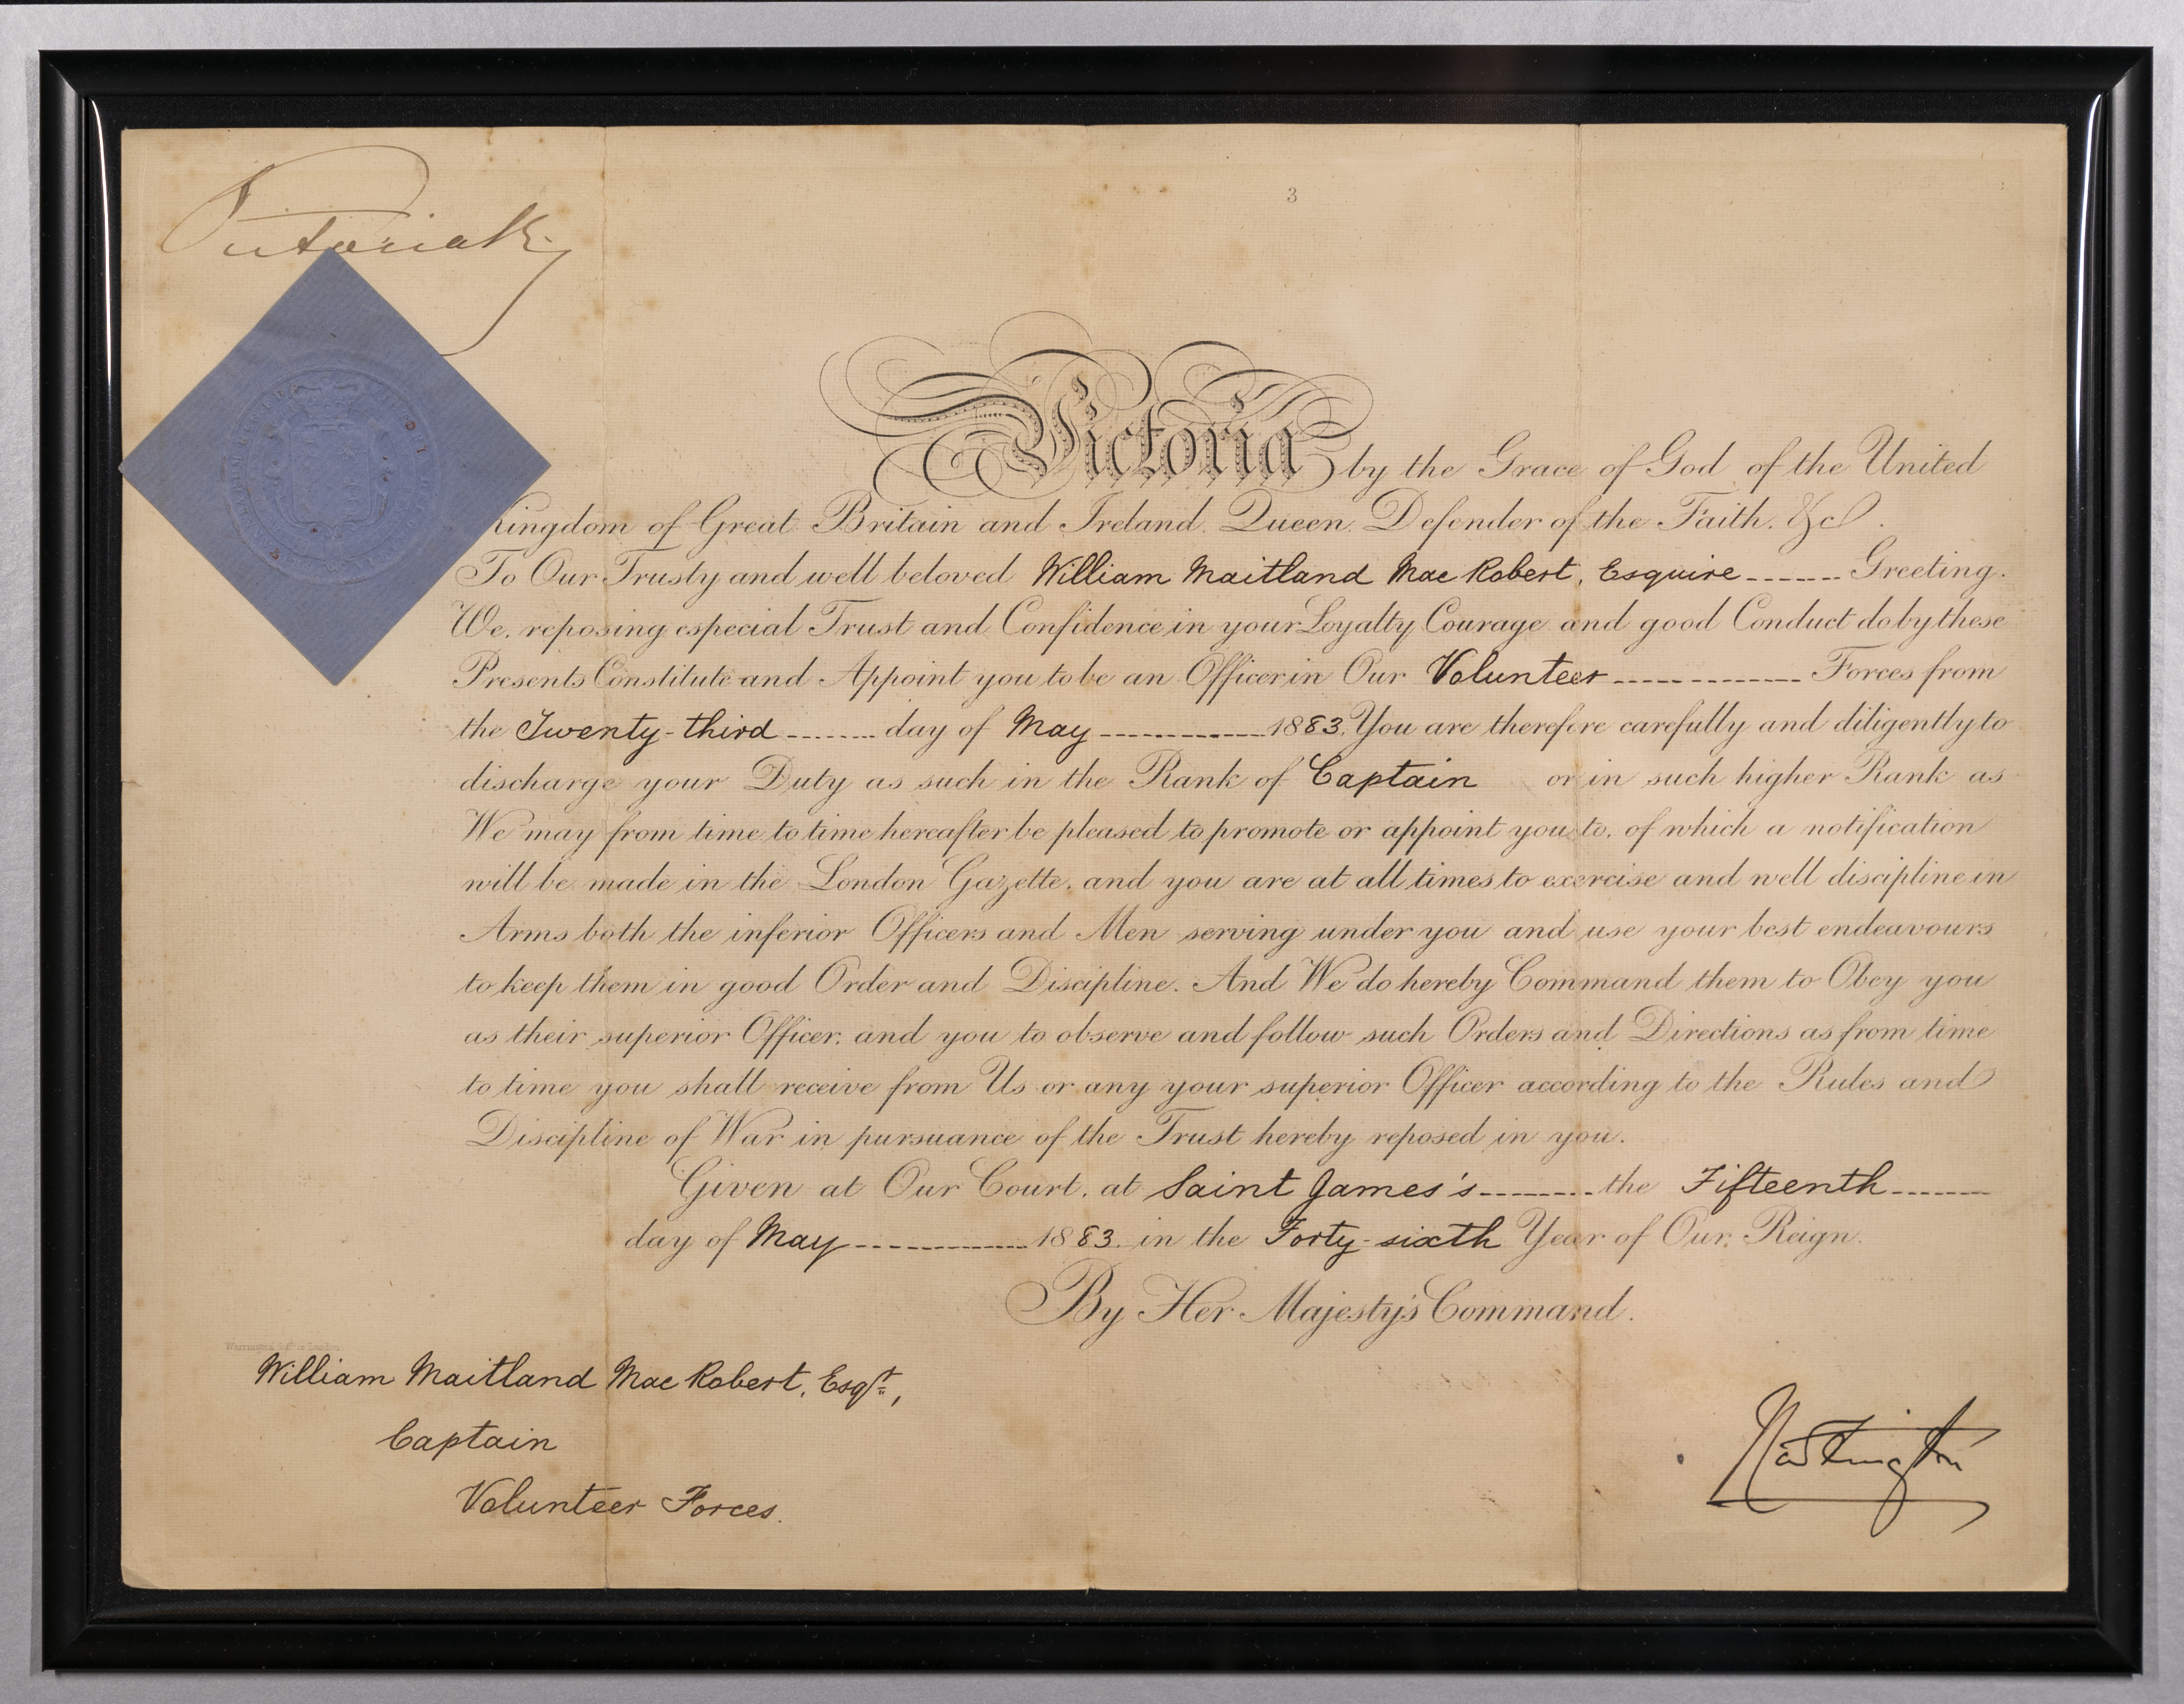 Victoria R
3
Victoria by the Grace of God of the United
Kingdom of Great Britain and Ireland, Queen, Defender of the Faith, &c.
To Our Trusty and well beloved William Maitland Mac Robert, Esquire ------ Greeting.
We, reposing especial Trust and Confidence in your Loyalty Courage and good Conduct do by these
Presents Constitute and Appoint you to be an Officer in Our Volunteer ------------- Forces from
the Twenty-third ------- day of May ------------ 1883. You are therefore carefully and diligently to
discharge your Duty as such in the Rank of Captain or in such higher Rank as
We may from time to time hereafter be pleased to promote or appoint you to, of which a notification
will be made in the London Gazette, and you are at all times to exercise and well discipline in
Arms both the inferior Officers and Men serving under you and use your best endeavours
to keep them in good Order and Discipline. And We do hereby Command them to Obey you
as their superior Officer, and you to observe and follow such Orders and Directions as from time
to time you shall receive from Us or any your superior Officer according to the Rules and
Discipline of War in pursuance of the Trust hereby reposed in you.
Given at Our Court, at Saint James's -------- the Fifteenth -------
day of May ------------- 1883. in the Forty-sixth Year of Our Reign.
By Her Majesty's Command.
William Maitland Mac Robert, Esqr.,
Captain
Volunteer Forces.
Hartington